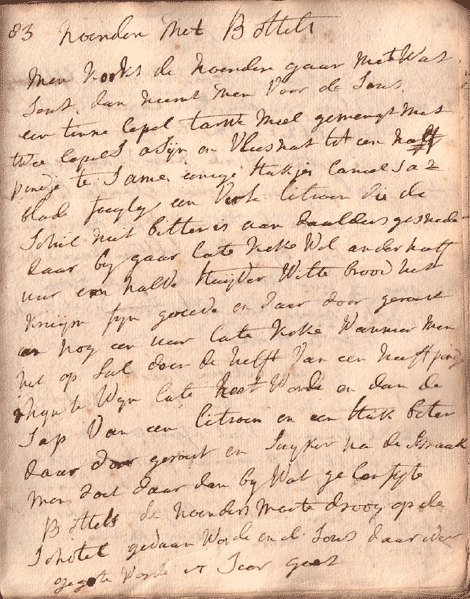 83 hoenden Met Bottels
Men kookt de hoenden gaar Met Wat
Sout, dan neemt Men Voor de Sous,
een tinne lepel tarwe Meel gemengt Met
twe lepels asijn en Vleesnat tot een half
pindje te Samen eenige stukjes Caneel 1 a 2
blad foeyly een Verse Citroen die de
Schil niet bitter is aan daalders gesneden
daar by gaar late koke Wel anderhalf
uur een halve stuyver Witte brood het
kruijm fyn gevreve en daar door geroert
en nog een uur late koke Wanneer Men
het op Sal doen de helft Van een half pintje
rhijnse Wyn late heet Worde en dan de
Sap Van een Citroen en een stuk boter
daar door geroert en Suyker na de Smaak
Men doet daar dan by Wat geconfyte
Bottels de hoenders Moete droog op de
Schotel gedaan Worde en de Sous daar over
gegote Worde is Seer goet